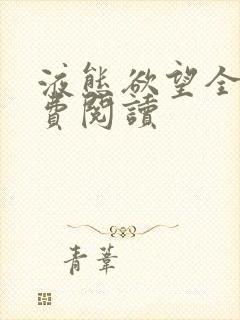 液態欲望全
費閱讀
青葦